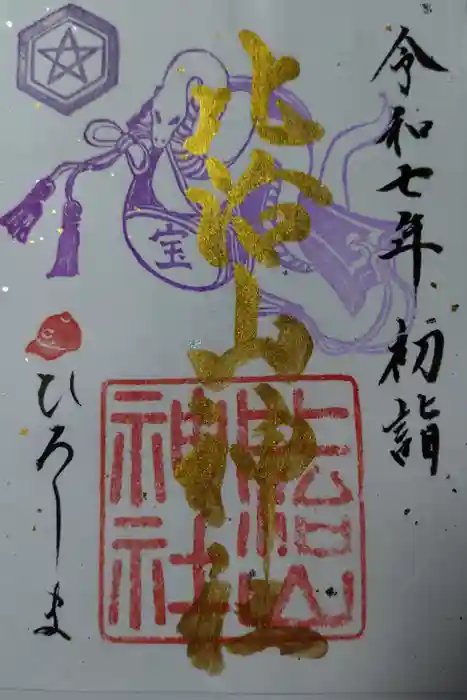 令和七年初詣
比治山神社
宝
ひろしま
比治山
神社